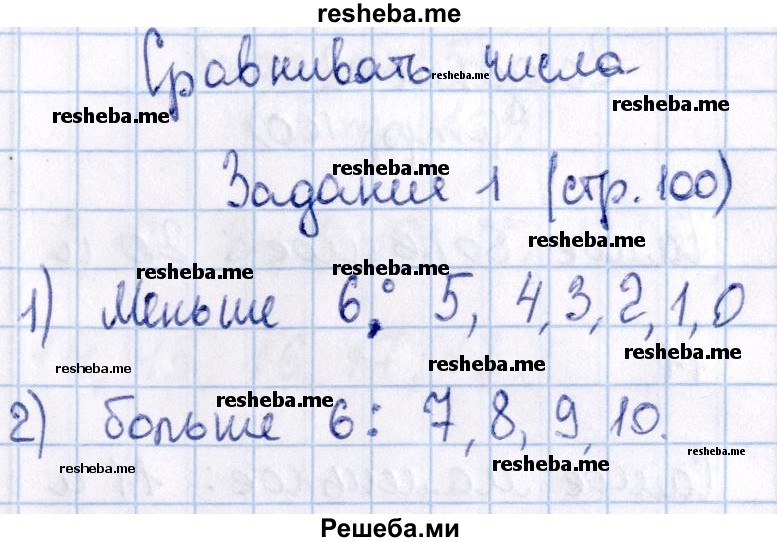 resheba.me
Сравнивать resheba.me числа
resheba.me resheba.me
resheba.me
Задание 1 (стр. 100)
resheba.me
resheba.me resheba.me
1) Меньше 6: 5, 4, 3, 2, 1, 0
resheba.me resheba.me resheba.me
resheba.me
2) больше 6: 7, 8, 9, 10.
resheba.me resheba.me resheba.me
Решеба.ми